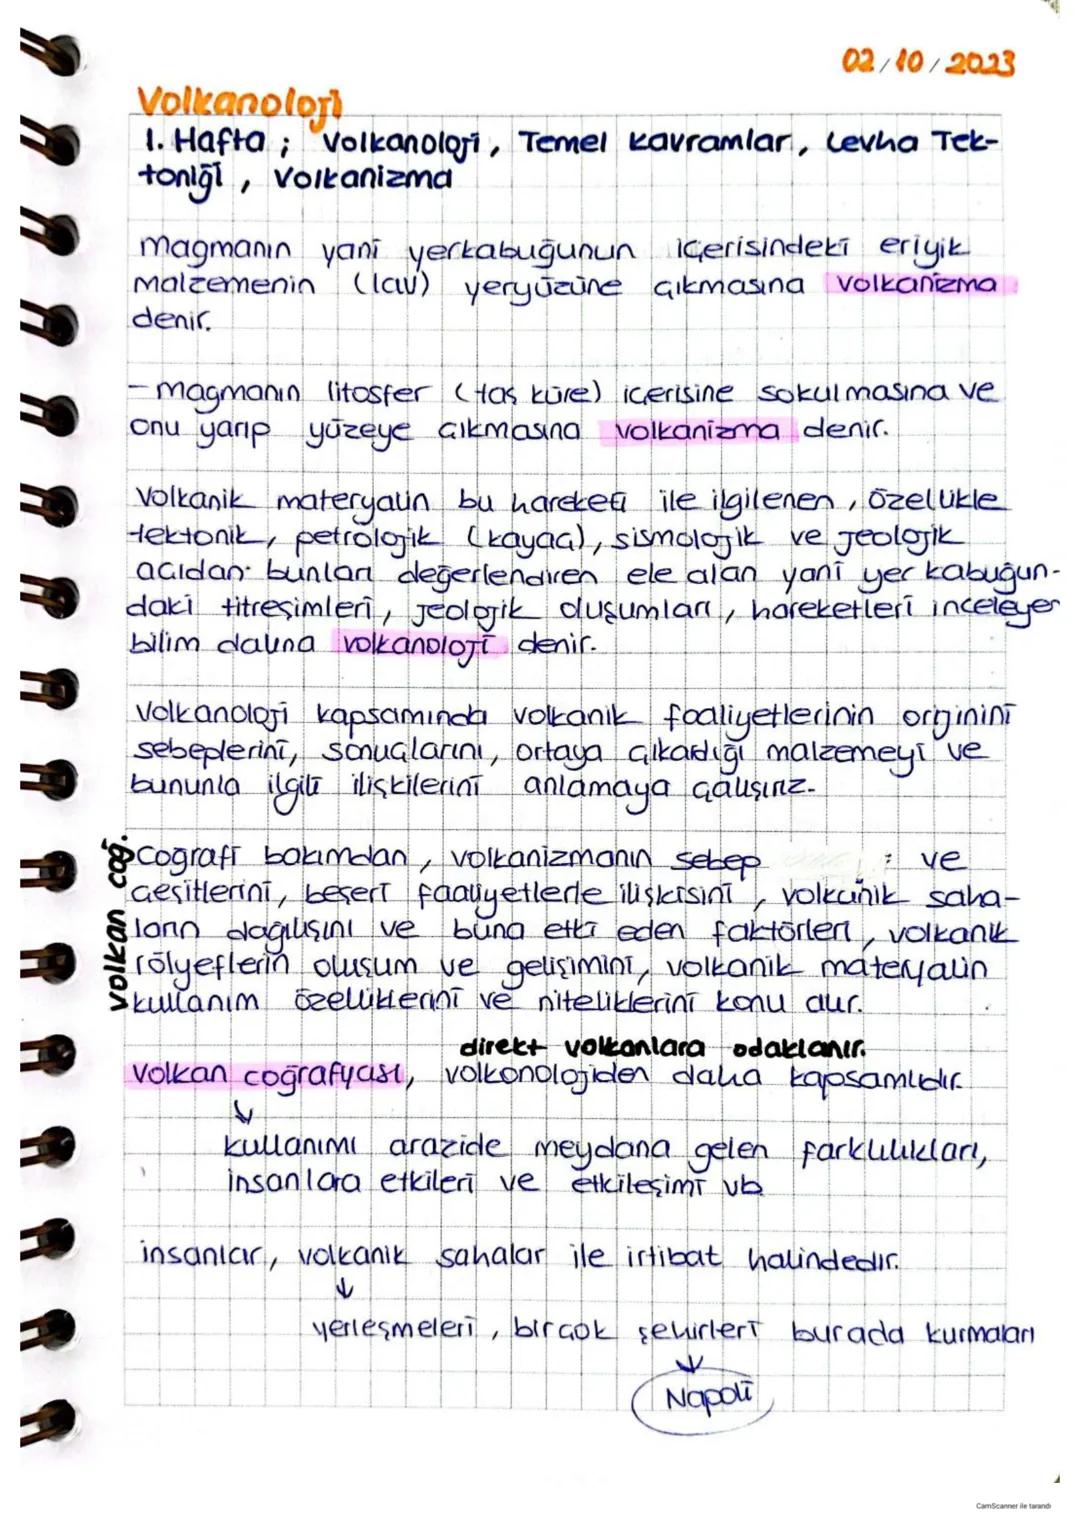 02/10/2023
Volkanoloji
1. Hafta ; Volkanoloji, Temel Kavramlar, Levha Tek-
toniği, Volkanizma
Magmanın yani yerkabuğunun içerisindeki eriyik
malzemenin (lav) yeryüzüne çıkmasına volkanizma
denir.
- Magmanın litosfer (taş küre) içerisine sokulmasına ve
onu yarıp yüzeye çıkmasına volkanizma denir.
Volkanik materyalin bu hareketi ile ilgilenen, özellikle
tektonik, petrolojik (kayaç), sismolojik ve jeolojik
açıdan bunları değerlendiren ele alan yani yer kabuğun-
daki titreşimleri, jeolojik oluşumları, hareketleri inceleyen
bilim dalına volkanoloji denir.
Volkanoloji kapsamında volkanik faaliyetlerinin orginini
sebeplerini, sonuçlarını, ortaya çıkardığı malzemeyi ve
bununla ilgili ilişkilerini anlamaya çalışırız.
volkan coğ.
Coğrafi bakımdan, volkanizmanın sebep ve
çeşitlerini, beşeri faaliyetlerle ilişkisini, volkanik saha-
ların dağılışını ve buna etki eden faktörleri, volkanik
rölyeflerin oluşum ve gelişimini, volkanik materyalin
kullanım özelliklerini ve niteliklerini konu alır.
direkt volkanlara odaklanır.
Volkan coğrafyası, volkonolojiden daha kapsamlıdır.
↓
kullanımı arazide meydana gelen farklılıkları,
insanlara etkileri ve etkileşimi vb
insanlar, volkanik sahalar ile irtibat halindedir.
↓
yerleşmeleri, birçok şehirleri burada kurmaları
↓
Napoli
CamScanner ile tarandı